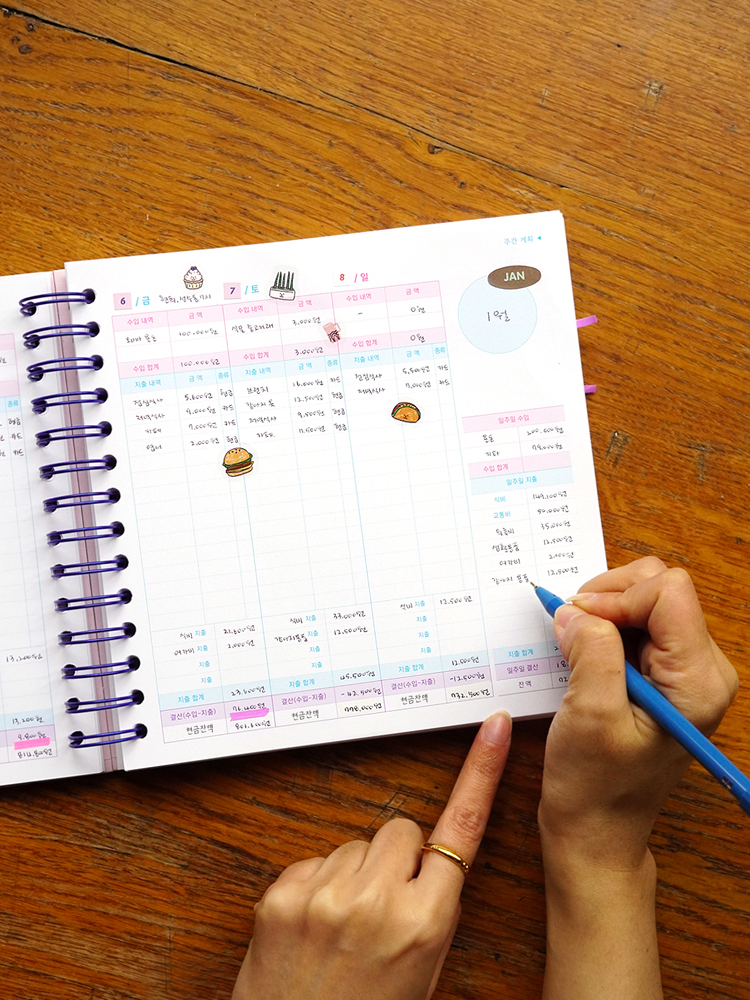 주간 계획 ◀
JAN
1월
6 / 금
7 / 토
8 / 일
수입 내역 금 액 수입 내역 금 액 수입 내역 금 액
100.000원 식물 중고거래 3.000원 - 0원
수입 합계 100.000원 수입 합계 3.000원 수입 합계 0원
지출 내역 금 액 종류 지출 내역 금 액 종류 지출 내역 금 액 종류
점심식사 5.600원 현금 브런치 16.000원 카드 점심식사 5,500원 카드
저녁식사 9.000원 카드 강아지 옷 12.500원 현금 저녁식사 7,000원 카드
카페 7.000원 카드 저녁식사 9.500원 현금
2.000원 현금 카페 7.500원 현금
일주일 수입
용돈 200.000원
기타 78.000원
수입 합계
일주일 지출
식비 143.100원
교통비 50.000원
35.000원
생활용품 12.500원
여가비 2.000원
강아지 용품 12.500원
식비 지출 21.600원 33.000원 식비 지출 12.500원
여가비 지출 2.000원 강아지용품 지출 12.500원 지출
지출 지출 지출
지출 지출 지출
지출 합계 23.600원 지출 합계 45.500원 지출 합계 12.500원 지출 합계
결산(수입-지출) 76.400원 결산(수입-지출) -42.500원 결산(수입-지출) -12.500원 일주일 결산
현금잔액 현금잔액 현금잔액 732.500원 잔액
종류
13,200원
13.200원
9.800원